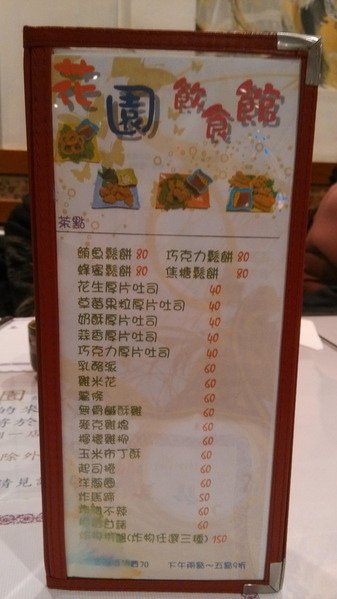 花園飲食館
茶點
鮪魚鬆餅 80 巧克力鬆餅 80
蜂蜜鬆餅 80 焦糖鬆餅 80
花生厚片吐司 40
草莓果粒厚片吐司 40
奶酥厚片吐司 40
蒜香厚片吐司 40
巧克力厚片吐司 40
乳酪派 60
雞米花 60
薯條 60
無骨鹹酥雞 60
麥克雞塊 60
檸檬雞柳 60
玉米布丁酥 60
起司捲 60
洋蔥圈 60
炸馬蹄 50
不辣 60
60
(炸物任選三種) 150
70 下午兩點~五點
的來
除外
請見